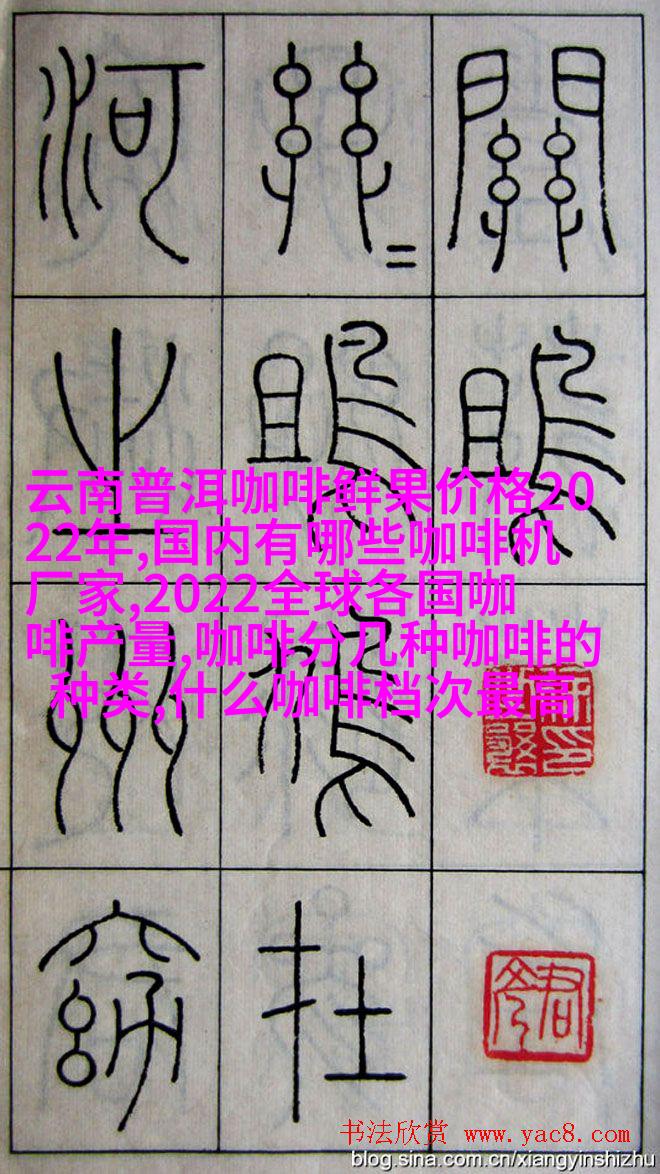 關雎
雎鳩在
河之州窈
云南普洱咖啡鲜果价格20
22年,国内有哪些咖啡机
厂家,2022全球各国咖
啡产量,咖啡分几种咖啡的
种类,什么咖啡档次最高
书法欣赏 www.yac8.com
blog.sina.com.cn/xiangyinshizhu